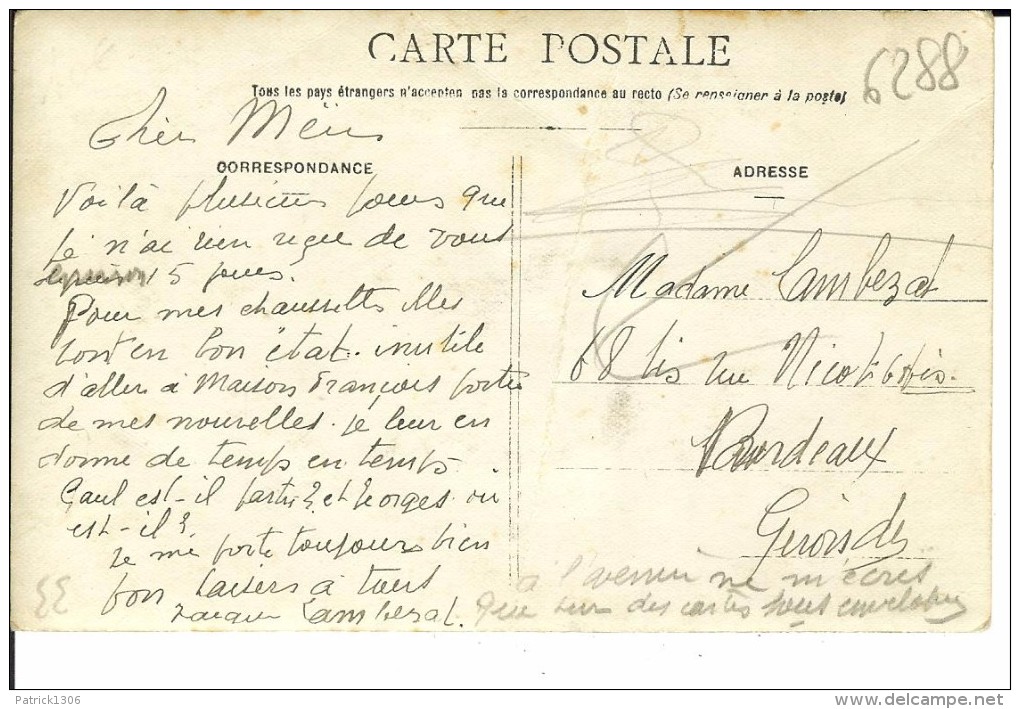 CARTE POSTALE
6288
Tous les pays étrangers n'acceptent pas la correspondance au recto (Se renseigner à la poste)
CORRESPONDANCE
ADRESSE
Voilà plusieurs jours que
je n'ai rien reçu de vous
depuis 15 jours.
Pour mes chaussettes elles
sont en bon état. inutile
d'aller à Maison François porter
de mes nouvelles. je leur en
donne de temps en temps.
Paul est-il parti? et Georges où
est-il?
Je me porte toujours bien
bon baisers à tous
Lambezat.
Madame Lambezat
68 bis rue
Bordeaux
Gironde
à l'avenir ne m'écris
que sur des cartes sous enveloppes
Patrick1306
www.delcampe.net